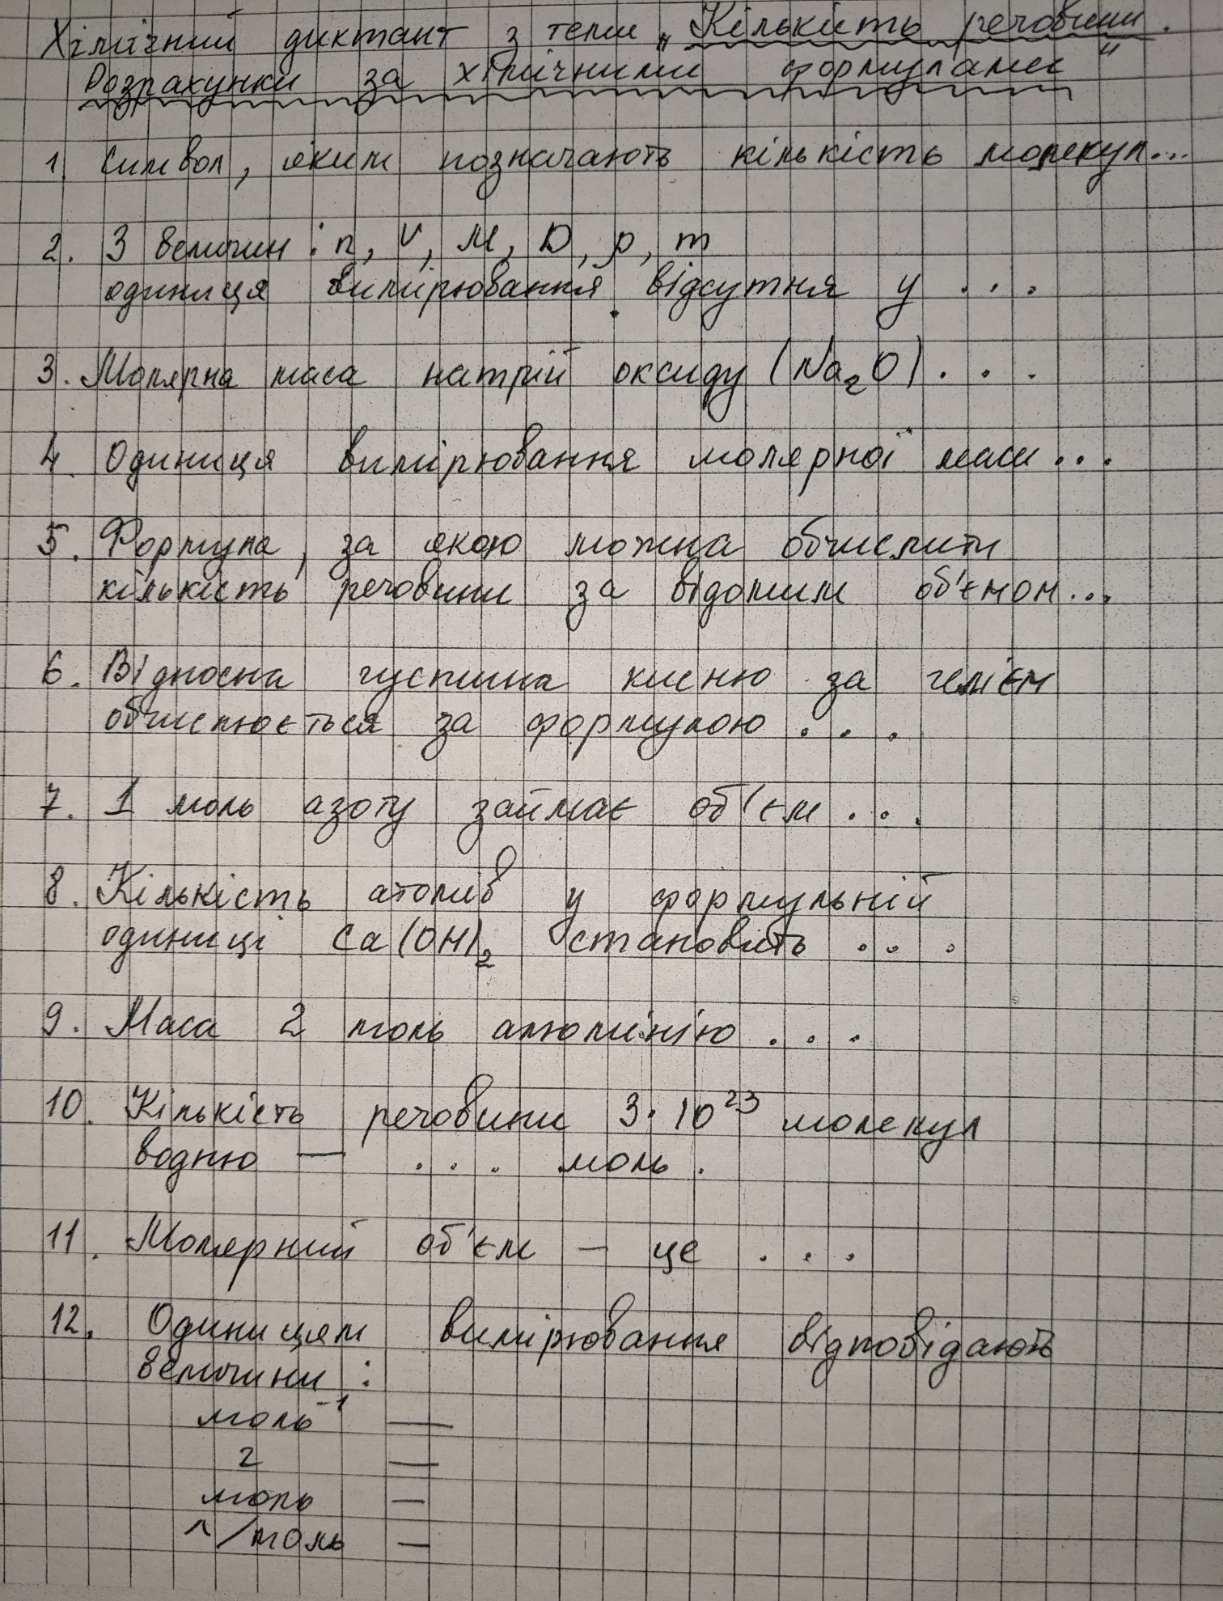 Хімічний диктант з теми „Кількість речовини.
Розрахунки за хімічними формулами"
1. Символ, яким позначають кількість молекул...
2. З величин: n, V, M, D, ρ, m
одиниця вимірювання відсутня у ...
3. Молярна маса натрій оксиду (Na₂O) ...
4. Одиниця вимірювання молярної маси ...
5. Формула, за якою можна обчислити
кількість речовини за відомим об'ємом...
6. Відносна густина кисню за гелієм
обчислюється за формулою ...
7. 1 моль азоту займає об'єм ...
8. Кількість атомів у формульній
одиниці Ca(OH)₂ становить ...
9. Маса 2 моль алюмінію ...
10. Кількість речовини 3·10²³ молекул
водню — ... моль.
11. Молярний об'єм – це ...
12. Одиницям вимірювання відповідають
величини:
моль⁻¹ —
г —
моль —
л/моль —